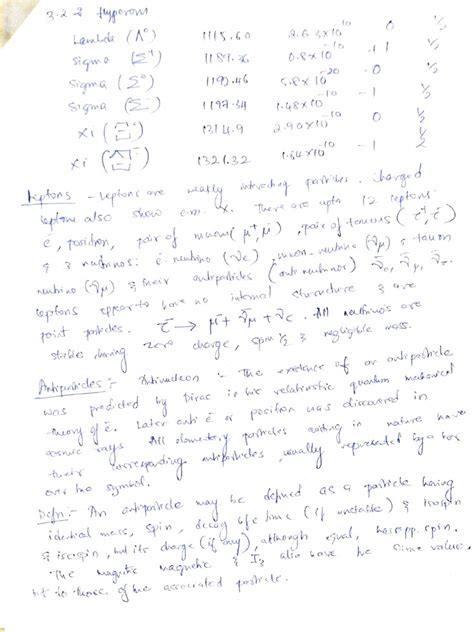 3.2.2 Hyperons
Lambda (Λ°) 1115.60 2.63x10⁻¹⁰ 0 ½
Sigma (Σ⁺) 1189.36 0.8x10⁻¹⁰ +1 ½
Sigma (Σ°) 1192.46 5.8x10⁻²⁰ 0 ½
Sigma (Σ⁻) 1197.34 1.48x10⁻¹⁰ -1 ½
Xi (Ξ°) 1314.9 2.90x10⁻¹⁰ 0 ½
Xi (Ξ⁻) 1321.32 1.64x10⁻¹⁰ -1 ½
Leptons - Leptons are weakly interacting particles. Charged
leptons also show e.m. There are upto 12 leptons.
e⁻, positron, pair of muons (μ⁺, μ⁻), pair of tauons (τ⁺, τ⁻)
& 3 neutrinos: e⁻ neutrino (νe), muon-neutrino (νμ) & tauon
neutrino & their antiparticles (anti neutrinos)
leptons appear to have no internal structure & are
point particles. τ⁻ → μ⁻ + All neutrinos are
stable, having zero charge, spin ½ & negligible mass.
Antiparticles :- :- The existence of an antiparticle
was predicted by Dirac in his relativistic quantum mechanical
theory of e⁻. Later anti e⁻ or positron was discovered in
cosmic rays. All elementary particles existing in nature have
their corresponding antiparticles, usually represented by a bar
over the symbol.
Defn:- An antiparticle may be defined as a particle having
identical mass, spin, decay life time (if unstable) & isospin
& isospin, but its charge (if any), although equal, has opp. spin.
The magnetic & I₃ also have the same value,
but to those of the associated particle.